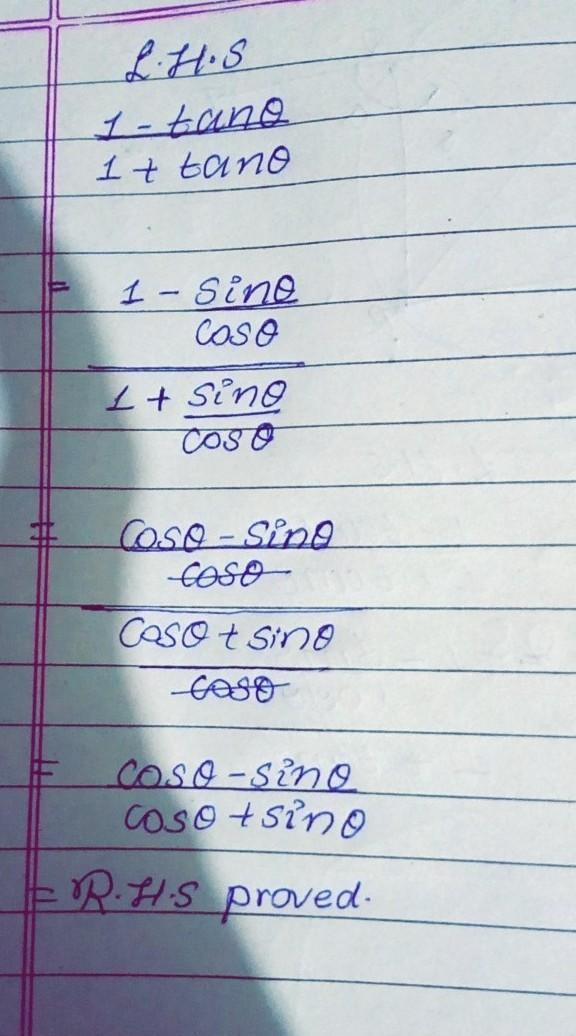 L.H.S
1 - tanθ
1 + tanθ
= 1 - sinθ
cosθ
1 + sinθ
cosθ
= cosθ - sinθ
cosθ
cosθ + sinθ
cosθ
= cosθ - sinθ
cosθ + sinθ
= R.H.S proved.